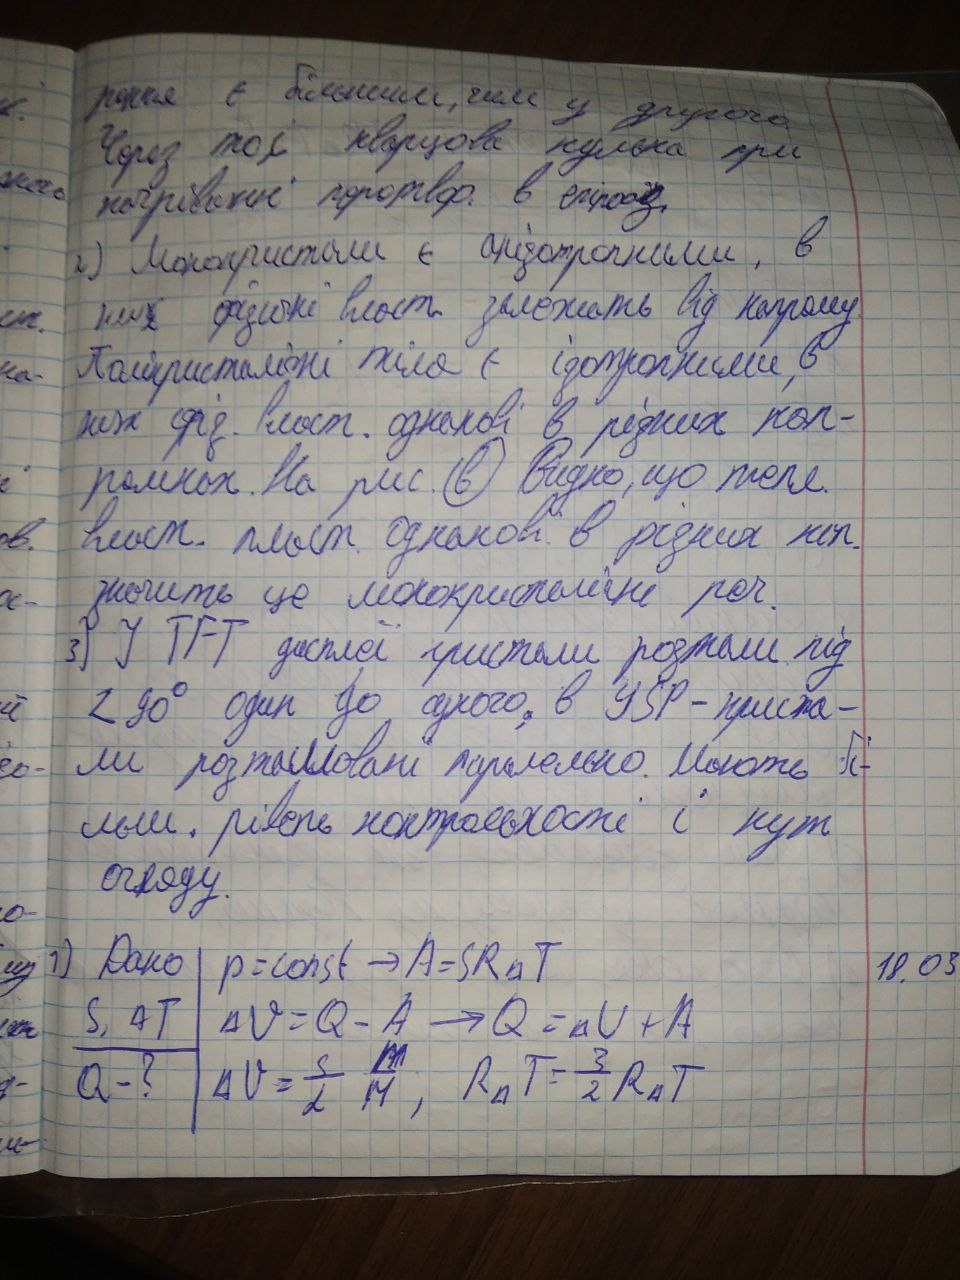 є більшим, чим у другого
Через той кварцова кулька при
нагріванні перетвор. в
2) Монокристали є анізотропними, в
них фізичні власт. залежать від напряму.
Полікристалічні тіла є ізотропними, в
них фіз. власт. однакові в різних нап-
рямках. На рис. (в) Видно, що тепл.
власт. пласт. однакові в різних нап.
значить це монокристалічні реч.
3) У TFT дисплеї кристали розташ. під
∠ 90° один до одного, в YSP - криста-
ли розташовані паралельно. Мають бі-
льш. рівень контрасності і кут
огляду.
1) Дано p = const → A = SR△T 18.03
S, △T △U = Q - A → Q = △U + A
Q - ? △U = S/2 m/M, R△T = 3/2 R△T